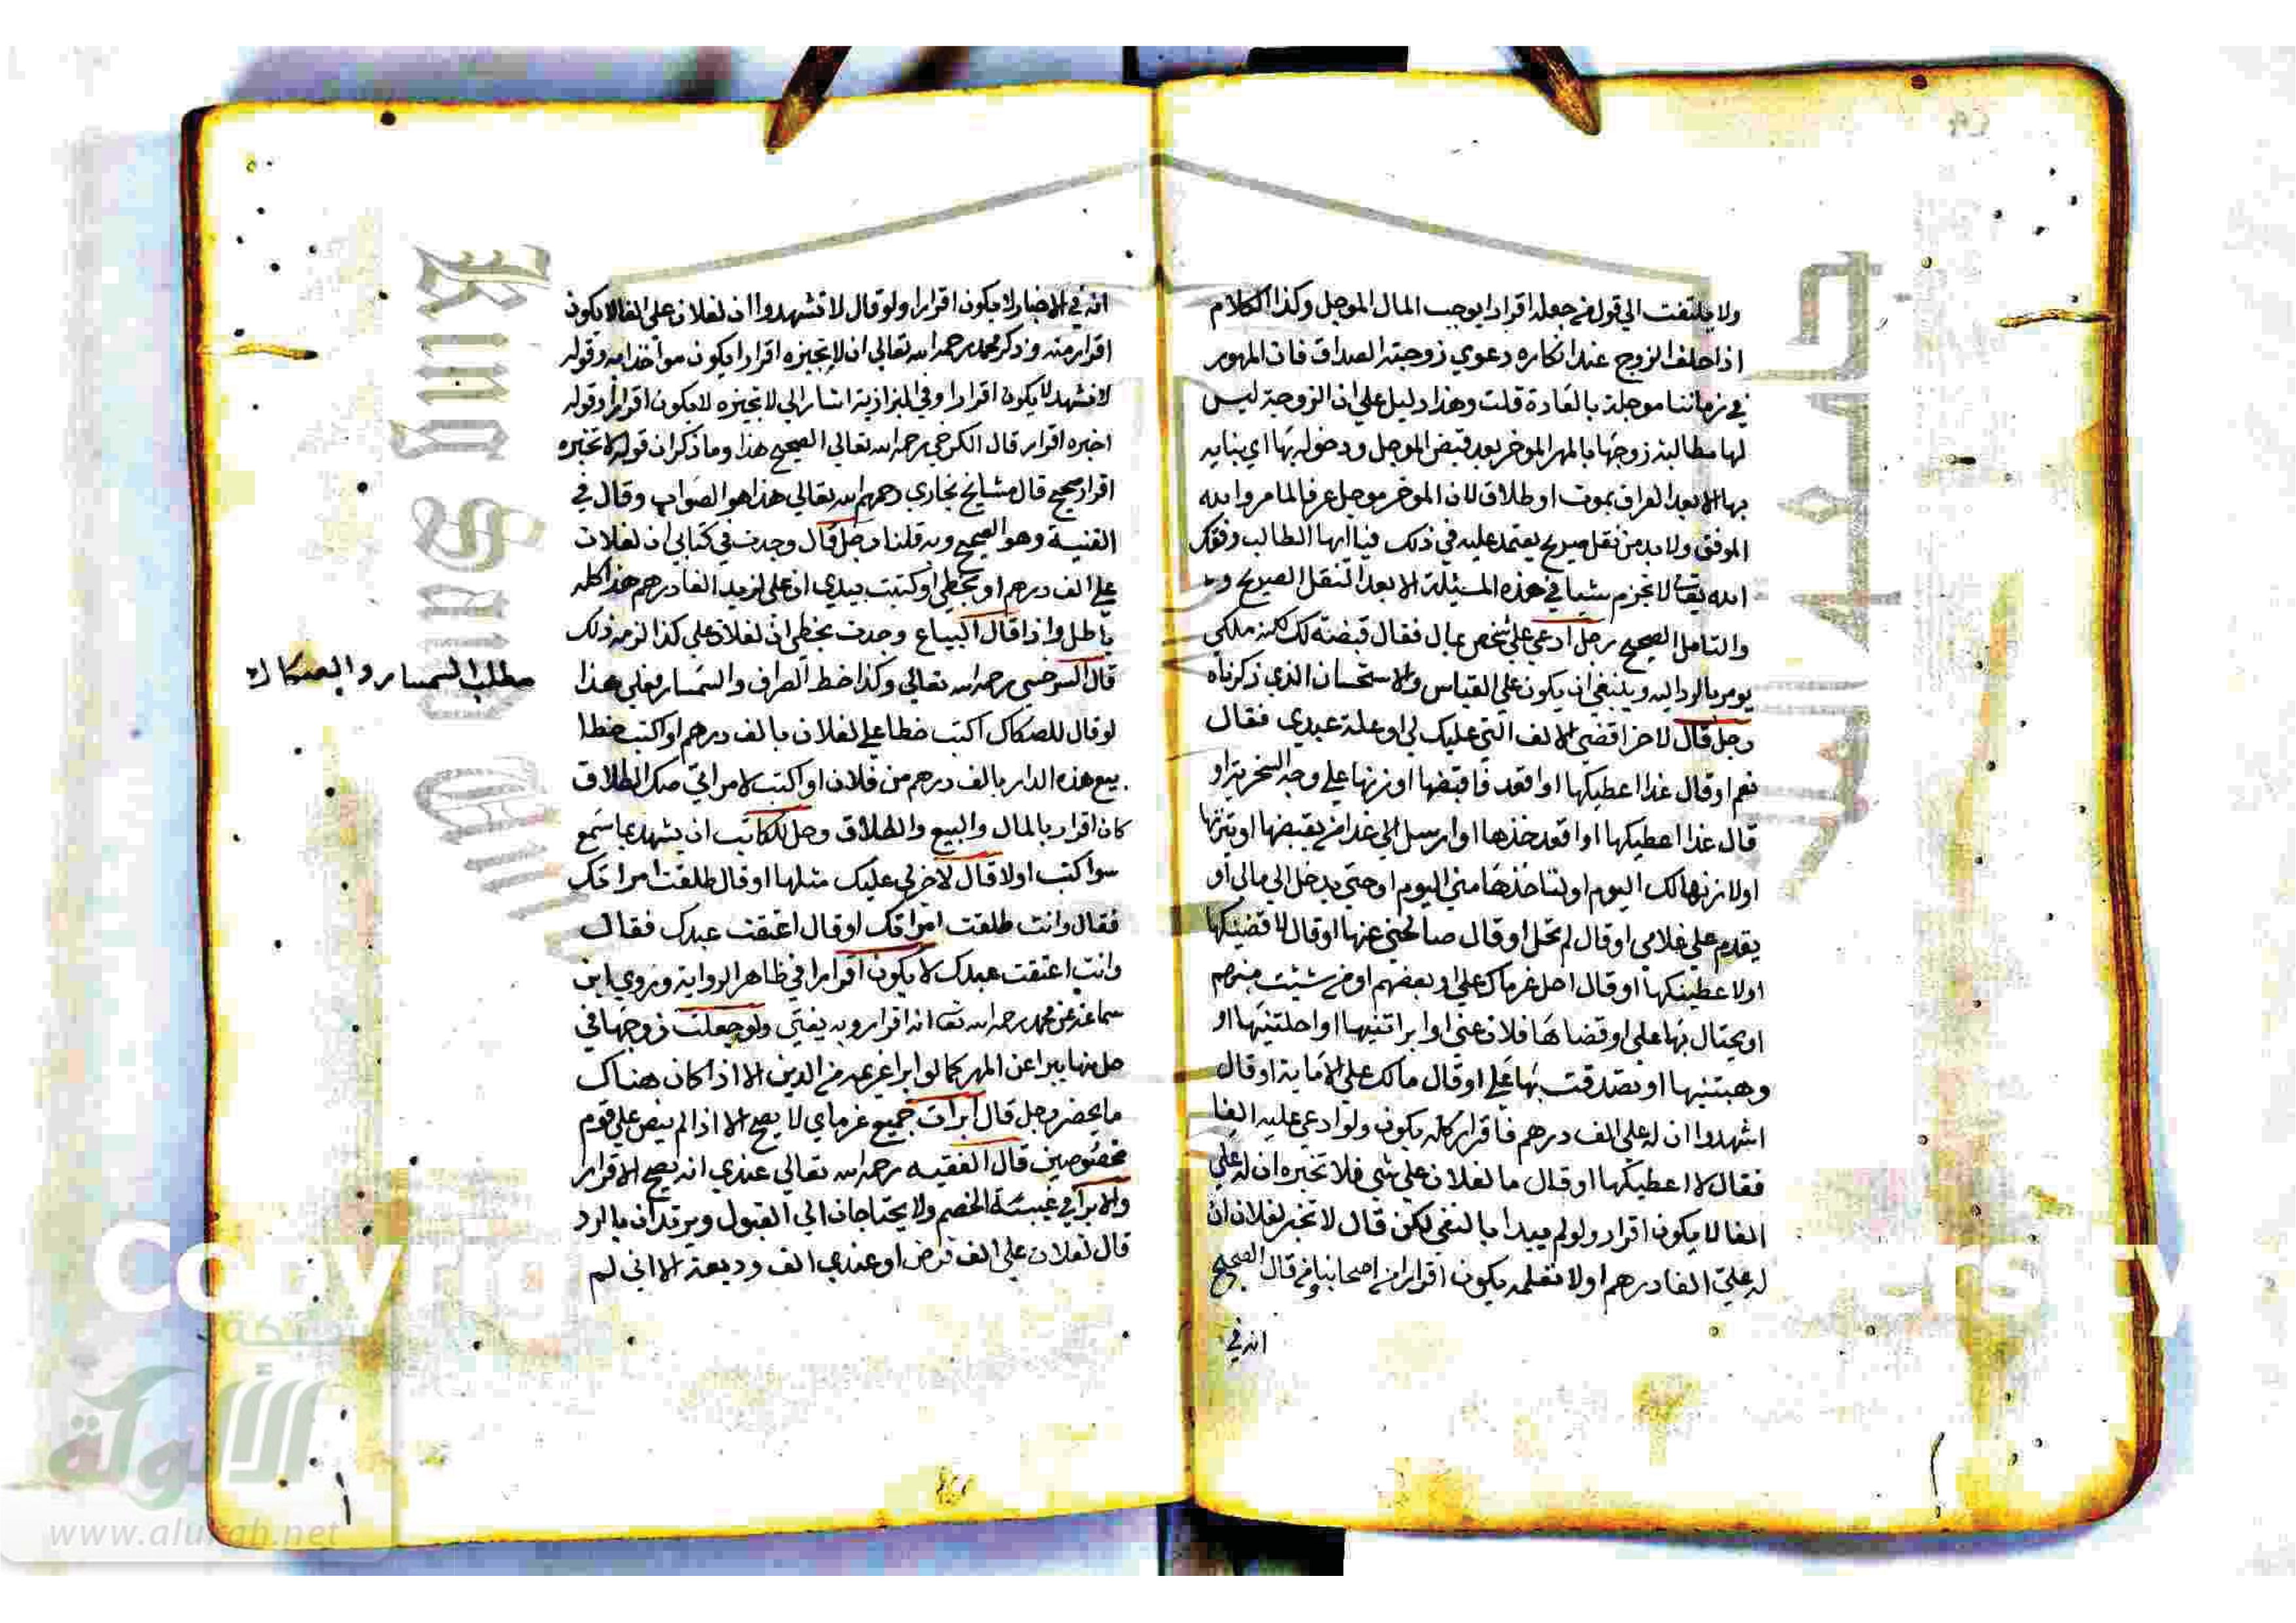 ولا يلتفت الي قول من جعله اقرارا يوجب المال الموجل وكذا الكلام
اذا حلف الزوج عند انكاره دعوي زوجته الصداق فان المهور
في زماننا موجلة بالعادة قلت وهذا دليل علي ان الزوجة ليس
لها مطالبة زوجها بالمهر الموخر بعد قبض الموجل ودخوله بها اي بنايه
بها الا بعد الفراق بموت او طلاق لان الموخر موجل عرفا لما مر والله
الموفق ولابد من نقل صريح يعتمد عليه في ذلك فيا ايها الطالب وفقك
الله تعالى لا تجزم شيا في هذه المسيلة الا بعد النقل الصريح
والتامل الصحيح رجل ادعي علي شخص بمال فقال قبضته لك لكنه ملكي
يومر بالرد اليه وينبغي ان يكون علي القياس والاستحسان الذي ذكرناه
رجل قال لاخر اقضي الالف التي عليك لي او غلة عبدي فقال
نعم او قال غدا اعطيكها او اقعد فاقبضها او زنها علي وجه السخرية او
قال غدا اعطيكها او اقعد خذها او ارسل الي غدا من يقبضها او يتزنها
اولا زنها لك اليوم او لتاخذها مني اليوم او حتي يدخل الي مالي او
يقدم علي غلامي او قال لم تحل او قال صالحني عنها او قال لا قضيتكها
اولا عطيتكها او قال احل غرماك علي او بعضهم او من شيت منهم
او يحتال بها علي او قضاها فلان عني او ابراتنيها او احلتنيها او
وهبتنيها او تصدقت بها علي او قال مالك علي الا ماية او قال
اشهدوا ان له علي الف درهم فاقرار كله يكون ولو ادعي عليه الفا
فقال لا اعطيكها او قال ما لفلان علي شي فلا تخبره ان له علي
الفا لا يكون اقرار ولو لم يبدا بالنفي لكن قال لا تخبر لفلان ان
له علي الفا درهم اولا تعلمه يكون اقرارا من اصحابنا من قال الصحيح
انه في
انه في الاخبار لا يكون اقرارا ولو قال لا تشهدوا ان لفلان علي الفا لا يكون
اقرار منه وذكر محمد رحمه الله تعالي ان لا تخبره اقرارا يكون مواخذا به وقوله
لا تشهد لا يكون اقرارا وفي البزازية اشار الي لا تخبره لا يكون اقرارا وقوله
اخبره اقرار قال الكرخي رحمه الله تعالي الصحيح هذا وما ذكر ان قوله لا تخبره
اقرار صحيح قال مشايخ بخاري رحمهم الله تعالي هذا هو الصواب وقال في
القنية وهو الصحيح وبه قلنا رجل قال وجدت في كتابي ان لفلان
علي الف درهم او بخطي او كتبت بيدي ان علي لزيد الفا درهم هذا كله
باطل واذا قال البياع وجدت بخطي ان لفلان علي كذا لزمه ذلك
قال السرخسي رحمه الله تعالي وكذا خط الصراف والسمسار فعلي هذا
مطلب السمسار والصكاك
لو قال للصكاك اكتب خطا علي لفلان بالف درهم او اكتب خطا
بيع هذه الدار بالف درهم من فلان او اكتب لامراتي صك الطلاق
كان اقرار بالمال والبيع والطلاق وحل للكاتب ان يشهد بما سمع
سوا كتب اولا قال لاخر لي عليك مثلها او قال طلقت امراتك
فقال وانت طلقت امراتك او قال اعتقت عبدك فقال
وانت اعتقت عبدك لا يكون اقرارا في ظاهر الرواية وروي ابن
سماعة عن محمد رحمه الله تعا انه اقرار وبه يفتي ولو جعلت زوجها في
حل منها يبرا عن المهر كما لو ابرا غريمه من الدين الا اذا كان هناك
ما يحضر رجل قال ابرات جميع غرماي لا يصح الا اذا لم ينص علي قوم
مخصوصين قال الفقيه رحمه الله تعالي عندي انه يصح الاقرار
والابرا في غيبة الخصم ولا يحتاجان الي القبول ويرتدان بالرد
قال لفلان علي الف قرض او عندي الف وديعة الا اني لم
Copyrig
ersity
King Saud Univ
شبكة
الألوكة
www.alukah.net